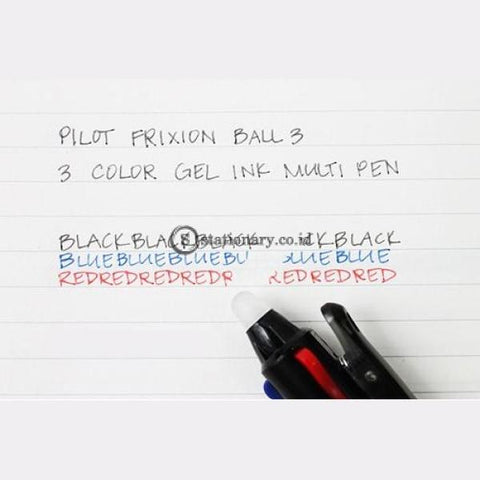 PILOT FRIXION BALL 3
3 COLOR GEL INK MULTI PEN
BLACKBLACKBLACK CKBLACK
stationary.co.id
BLUEBLUEBLUEBU LUEBLUE
REDREDREDREDR REDREDRED